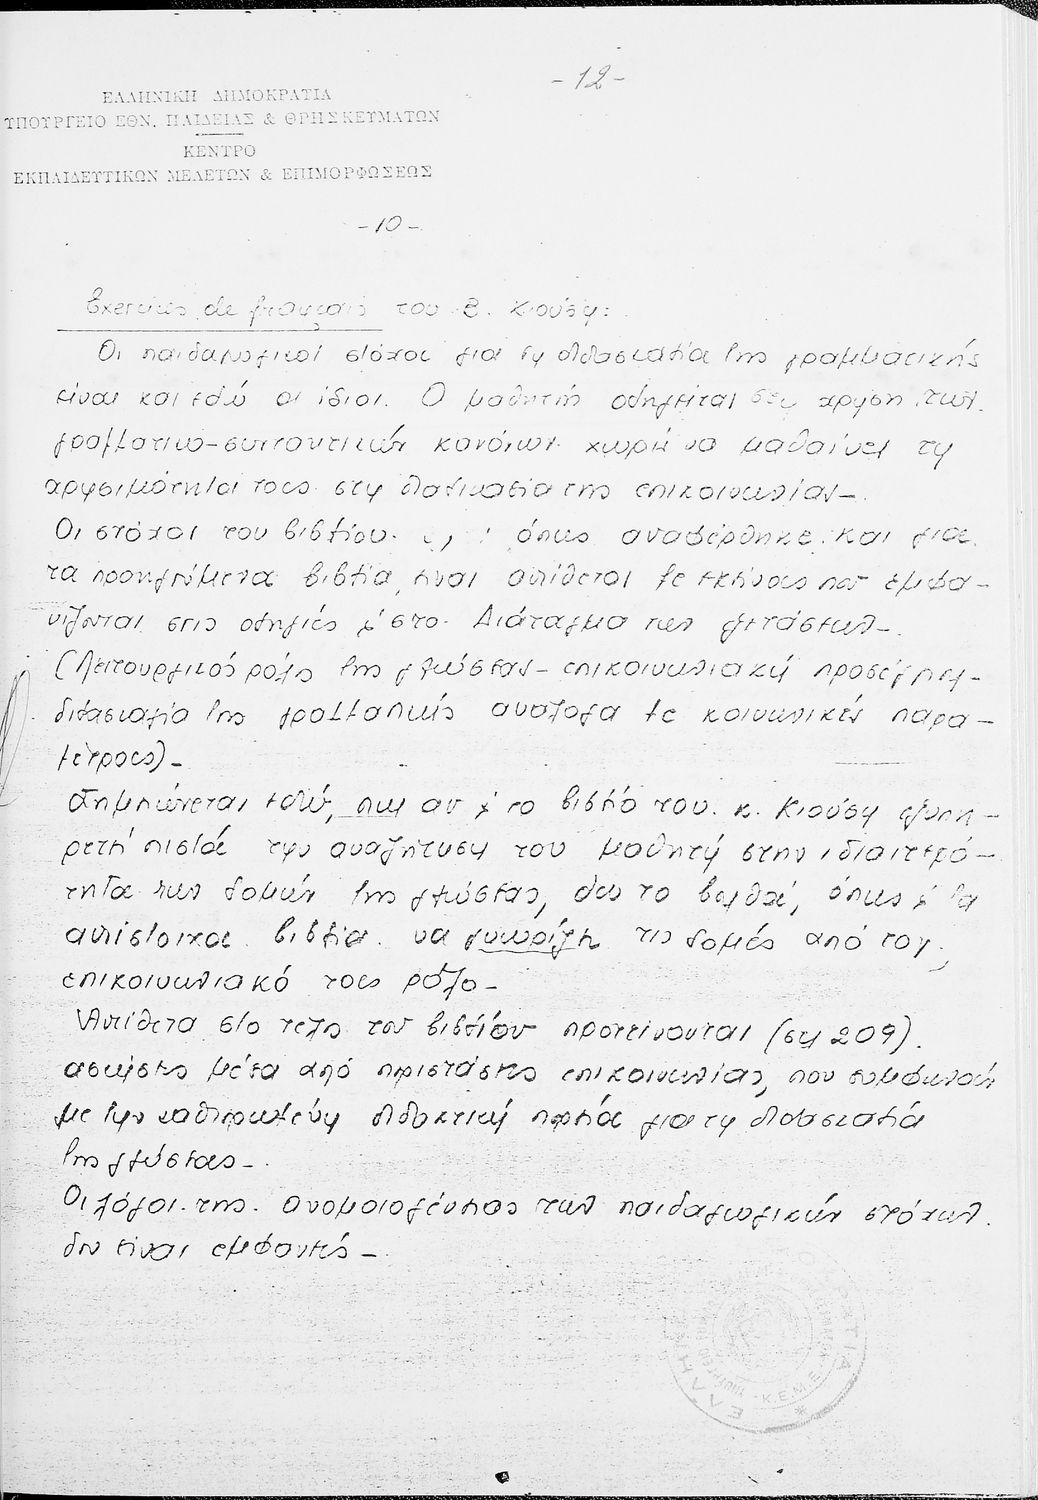 -12-
ΕΛΛΗΝΙΚΗ ΔΗΜΟΚΡΑΤΙΑ
ΥΠΟΥΡΓΕΙΟ ΕΘΝ. ΠΑΙΔΕΙΑΣ & ΘΡΗΣΚΕΥΜΑΤΩΝ
ΚΕΝΤΡΟ
ΕΚΠΑΙΔΕΥΤΙΚΩΝ ΜΕΛΕΤΩΝ & ΕΠΙΜΟΡΦΩΣΕΩΣ
-10-
Exercices de français του Β. Κιούση:
Οι παιδαγωγικοί στόχοι για τη διδασκαλία της γραμματικής
είναι και εδώ οι ίδιοι. Ο μαθητής οδηγείται στη χρήση των
γραμματικο-συντακτικών κανόνων χωρίς να μαθαίνει τη
χρησιμότητά τους στη διαδικασία της επικοινωνίας-.
Οι στόχοι του βιβλίου όπως αναφέρθηκε και για
τα προηγούμενα βιβλία, είναι αντίθετοι με εκείνους που εμφα-
νίζονται στις οδηγίες κ' στο Διάταγμα των εξετάσεων-.
(λειτουργικός ρόλος της γλώσσας- επικοινωνιακή προσέγγιση-
διδασκαλία της γραμματικής ανάλογα με κοινωνικές παρα-
μέτρους)-
Σημειώνεται εδώ, πως αν κ' το βιβλίο του κ. Κιούση εξυπη-
ρετεί πιστά την αναζήτηση του μαθητή στην ιδιαιτερό-
τητα των δομών της γλώσσας, δεν το βοηθά, όπως κ' τα
αντίστοιχα βιβλία να γνωρίζη τις δομές από τον
επικοινωνιακό τους ρόλο-
Αντίθετα στο τέλος του βιβλίου προτείνονται (σελ 209)
ασκήσεις μέσα από περιστάσεις επικοινωνίας, που συμφωνούν
με την καθιερωμένη διδακτική πορεία για τη διδασκαλία
της γλώσσας-.
Οι λόγοι της ανομοιογένειας των παιδαγωγικών στόχων
δεν είναι εμφανείς-
ΕΛΛΗΝΙΚΗ
Κ.Ε.Μ.Ε.